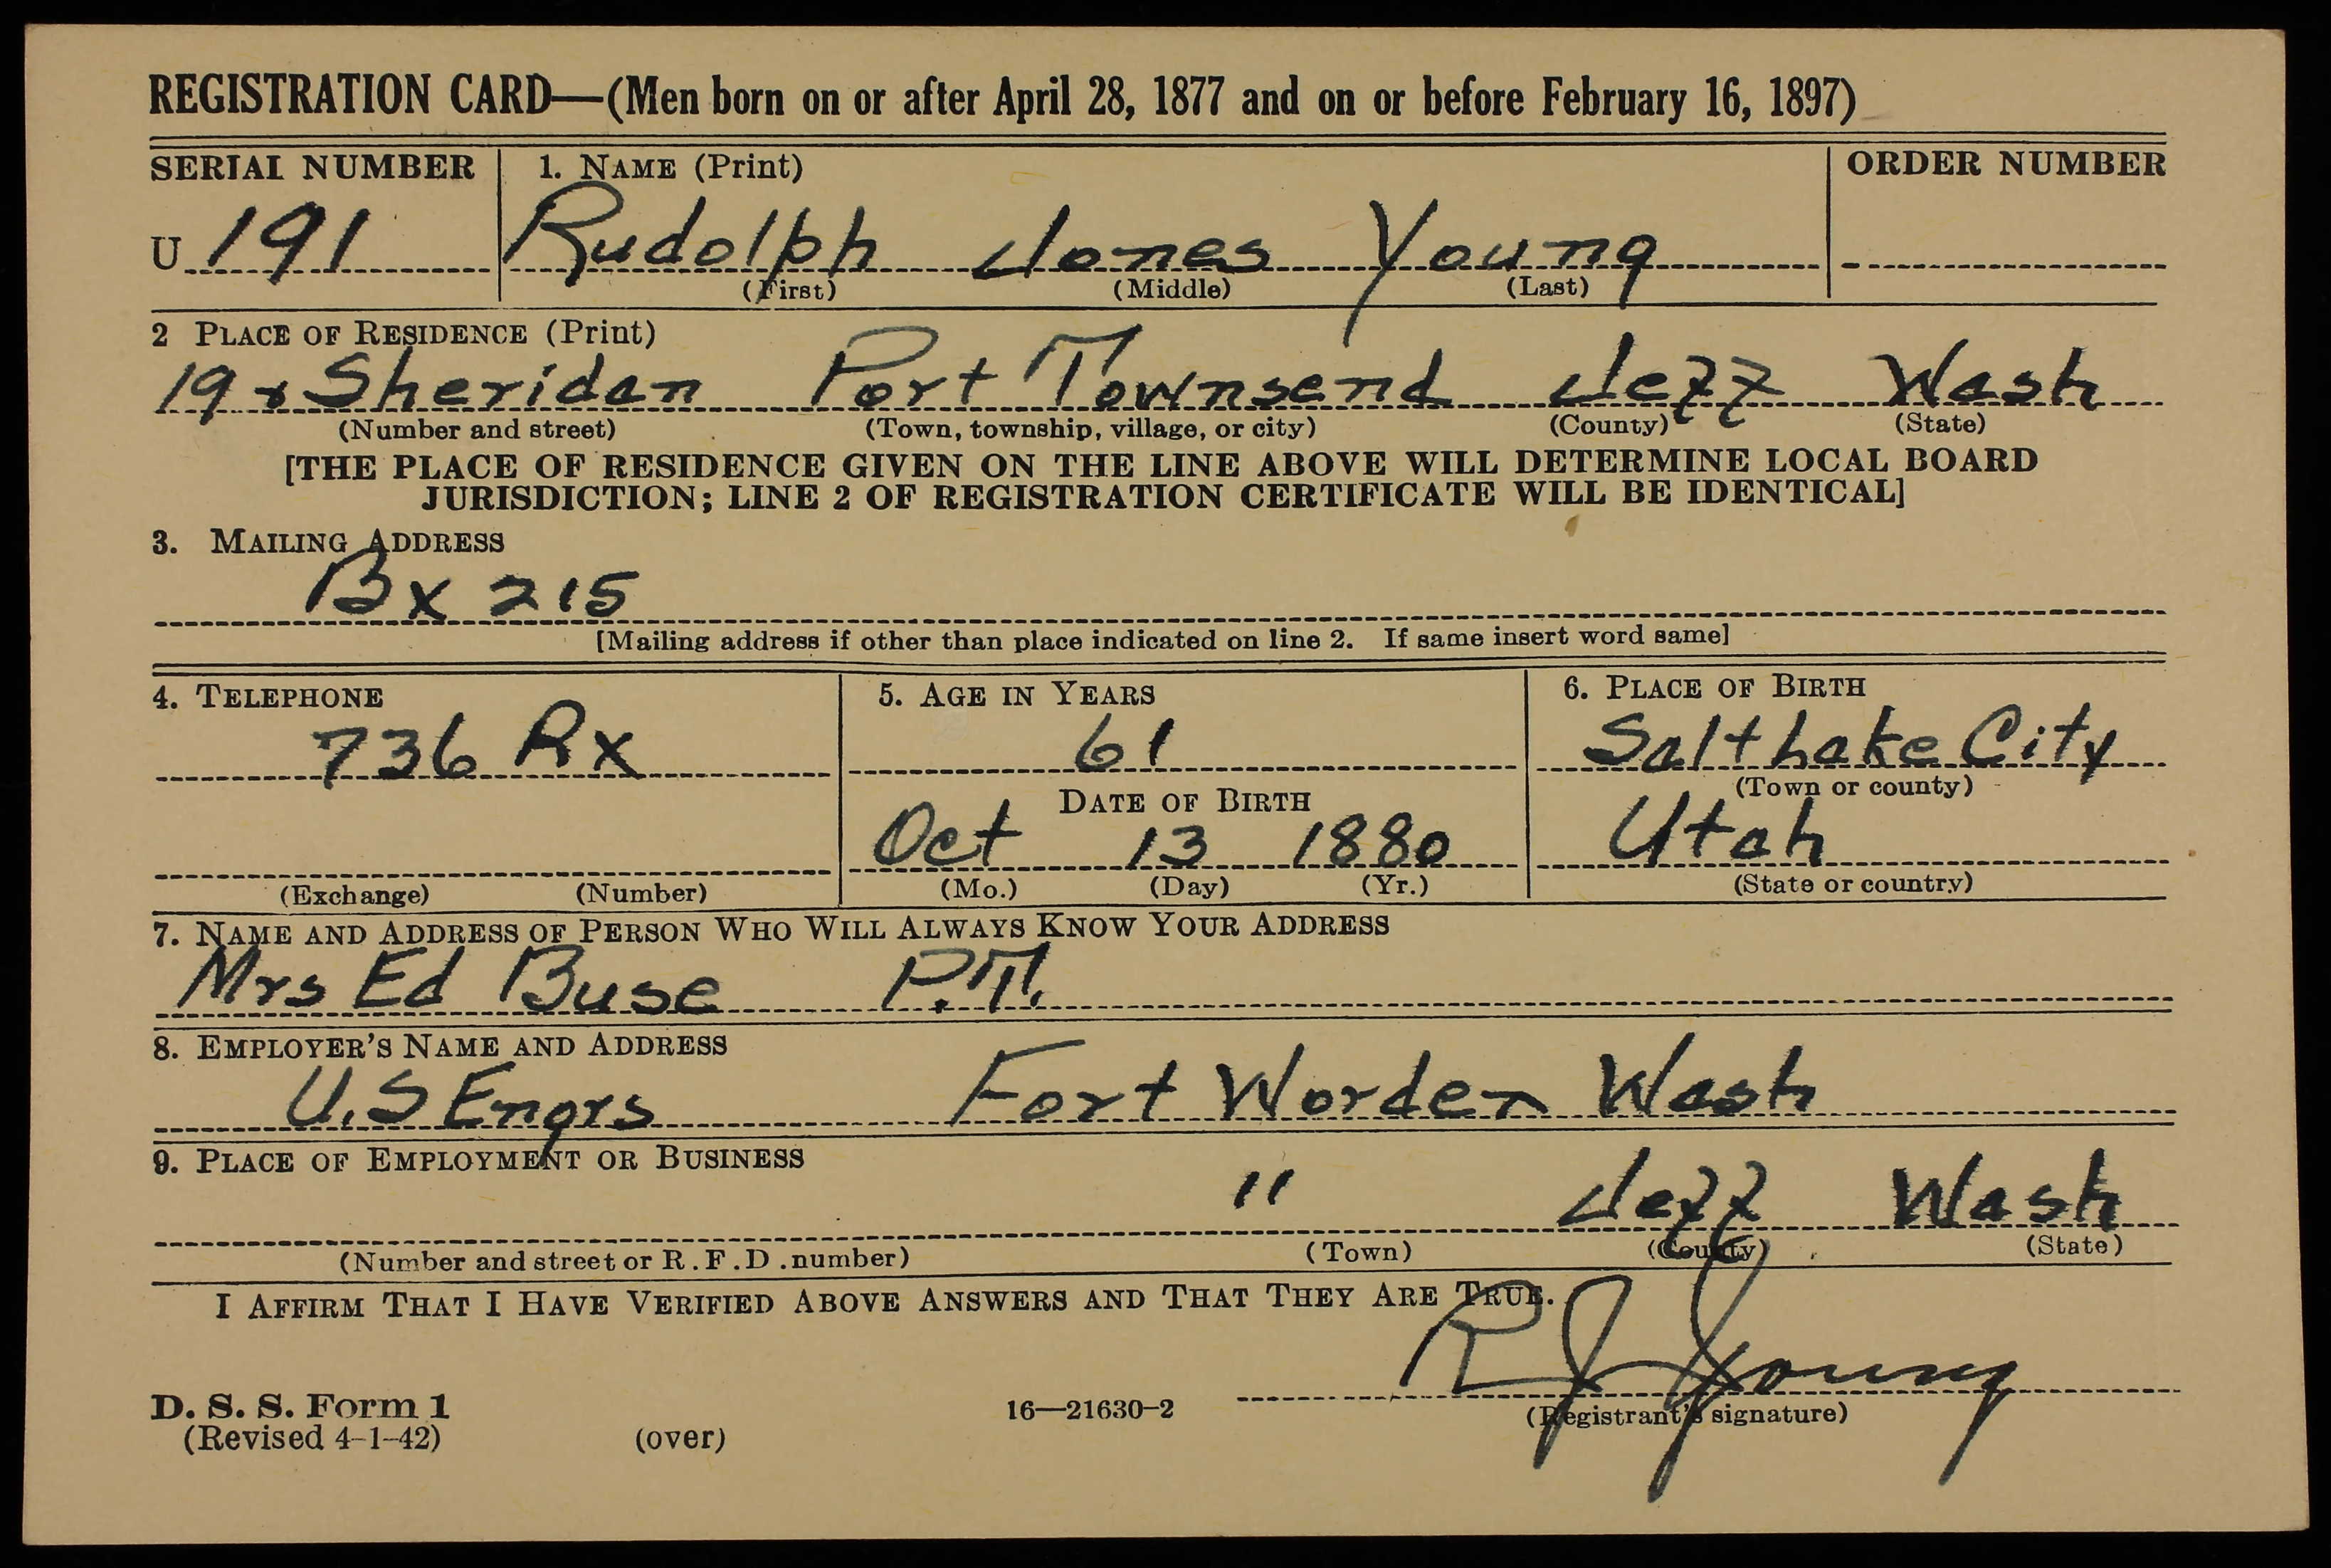 REGISTRATION CARD—(Men born on or after April 28, 1877 and on or before February 16, 1897)
SERIAL NUMBER 1. NAME (Print) ORDER NUMBER
U 191 Rudolph Jones Young
(First) (Middle) (Last)
2 PLACE OF RESIDENCE (Print)
19 & Sheridan Port Townsend Jeff Wash
(Number and street) (Town, township, village, or city) (County) (State)
[THE PLACE OF RESIDENCE GIVEN ON THE LINE ABOVE WILL DETERMINE LOCAL BOARD
JURISDICTION; LINE 2 OF REGISTRATION CERTIFICATE WILL BE IDENTICAL]
3. MAILING ADDRESS
Bx 215
[Mailing address if other than place indicated on line 2. If same insert word same]
4. TELEPHONE 5. AGE IN YEARS 6. PLACE OF BIRTH
736 Rx 61 Salt Lake City
(Town or county)
DATE OF BIRTH
Oct 13 1880 Utah
(Exchange) (Number) (Mo.) (Day) (Yr.) (State or country)
7. NAME AND ADDRESS OF PERSON WHO WILL ALWAYS KNOW YOUR ADDRESS
Mrs Ed Buse P.T.
8. EMPLOYER'S NAME AND ADDRESS
U.S Engrs Fort Worden Wash
9. PLACE OF EMPLOYMENT OR BUSINESS
" Jeff Wash
(Number and street or R.F.D. number) (Town) (County) (State)
I AFFIRM THAT I HAVE VERIFIED ABOVE ANSWERS AND THAT THEY ARE TRUE.
R J Young
D. S. S. Form 1 16—21630-2 (Registrant's signature)
(Revised 4-1-42) (over)